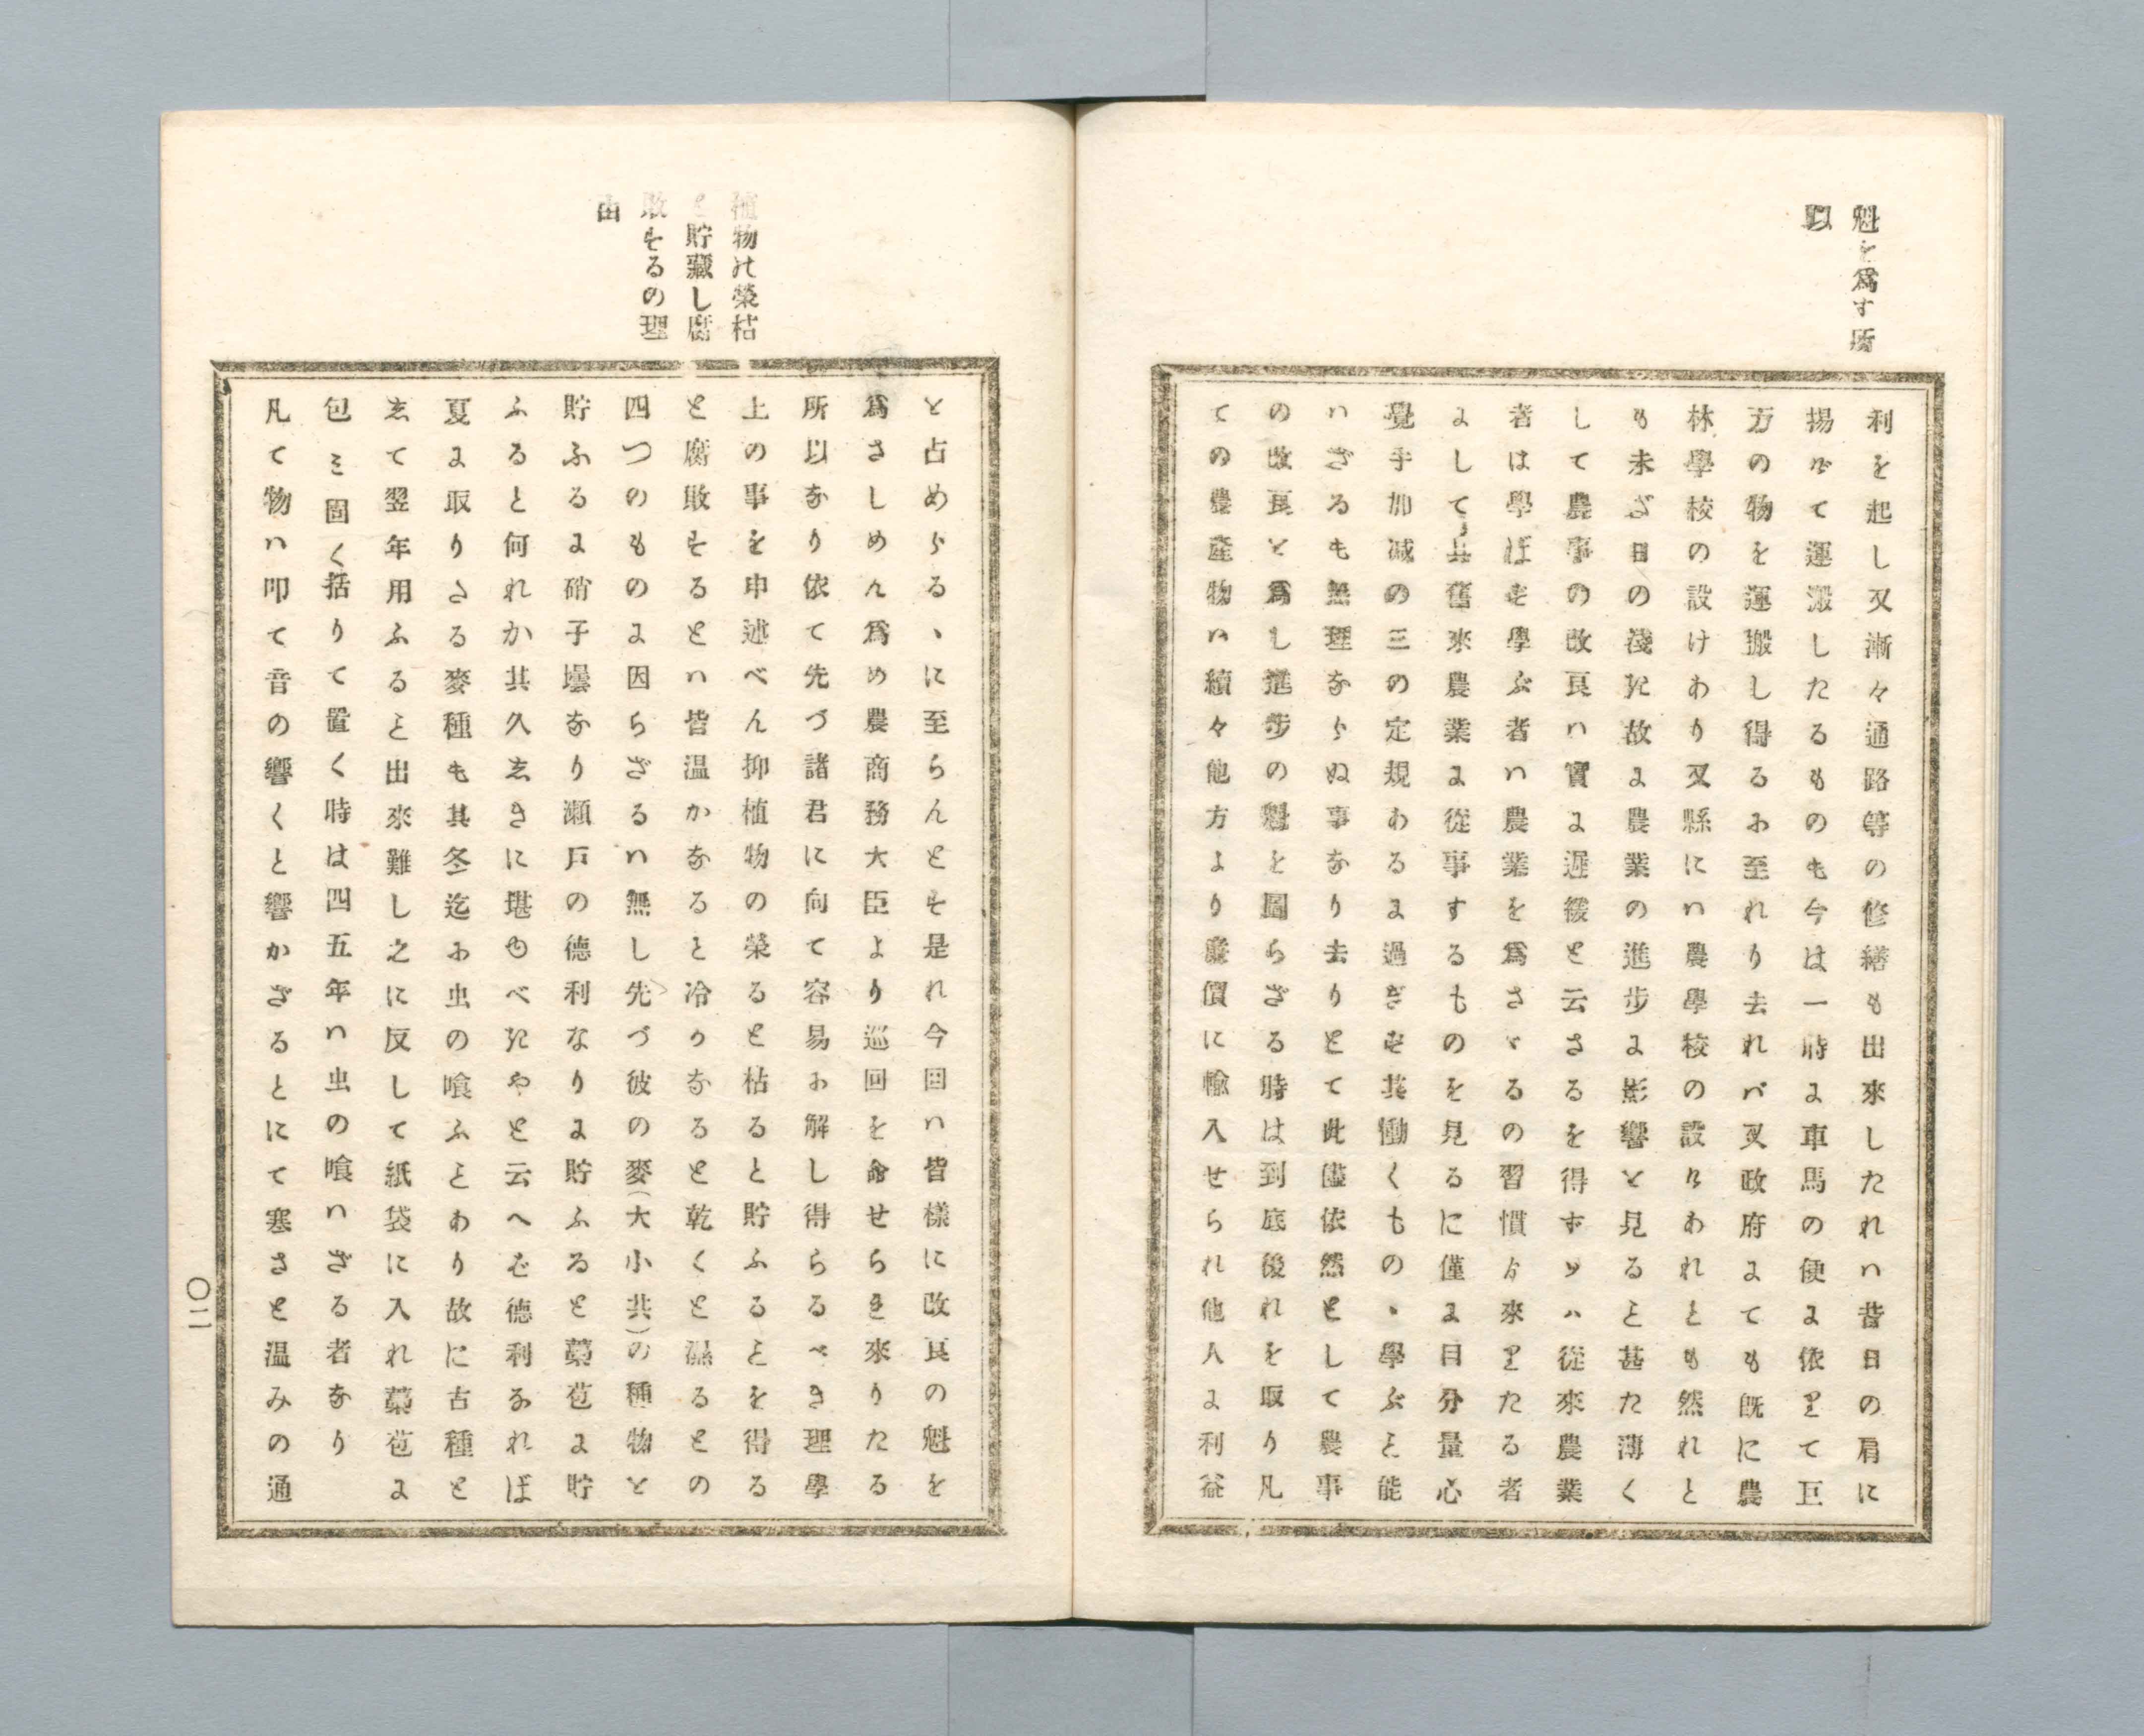 魁を爲す所
以
利を起し又漸々通路等の修繕も出來したれハ昔日の肩に
揚げて運搬したるものも今は一時に車馬の便に依りて巨
万の物を運搬し得るに至れり去れバ又政府にても既に農
林學校の設けあり又縣にハ農學校の設けあれとも然れと
も未ざ日の淺き故に農業の進歩に影響と見ると甚た薄く
して農事の改良ハ實に遅緩と云さるを得ずソハ從來農業
者は學ばず學ぶ者ハ農業を爲さゞるの習慣より來りたる者
にして其舊來農業に從事するものを見るに僅に目分量心
覺手加減の三の定規あるに過ぎず其働くもの、學ぶと能
ハざるも無理ならぬ事なり去りとて此儘依然として農事
の改良と爲し進歩の魁を圖らざる時は到底後れを取り凡
ての農產物ハ續々他方より廉價に輸入せられ他人に利益
植物の榮枯
と貯藏し腐
敗するの理
由
と占めらる、に至らんとす是れ今回ハ皆樣に改良の魁を
爲さしめん爲め農商務大臣より巡回を命せらき來りたる
所以なり依て先づ諸君に向て容易に解し得らるべき理學
上の事を申述べん抑植物の榮ると枯ると貯ふるとを得る
と腐敗するとハ皆温かなると冷かなると乾くと濕るとの
四つのものに因らざるハ無し先づ彼の麥(大小共)の種物と
貯ふるに硝子壜なり瀬戸の德利なりに貯ふると藁苞に貯
ふると何れか其久しきに堪ゆべきやと云へば德利なれば
夏に取りさる麥種も其冬迄に虫の喰ふとあり故に古種と
して翌年用ふると出來難し之に反して紙袋に入れ藁苞に
包み固く括りて置く時は四五年ハ虫の喰ハざる者なり
凡て物ハ叩て音の響くと響かざるとにて寒さと温みの通
〇二